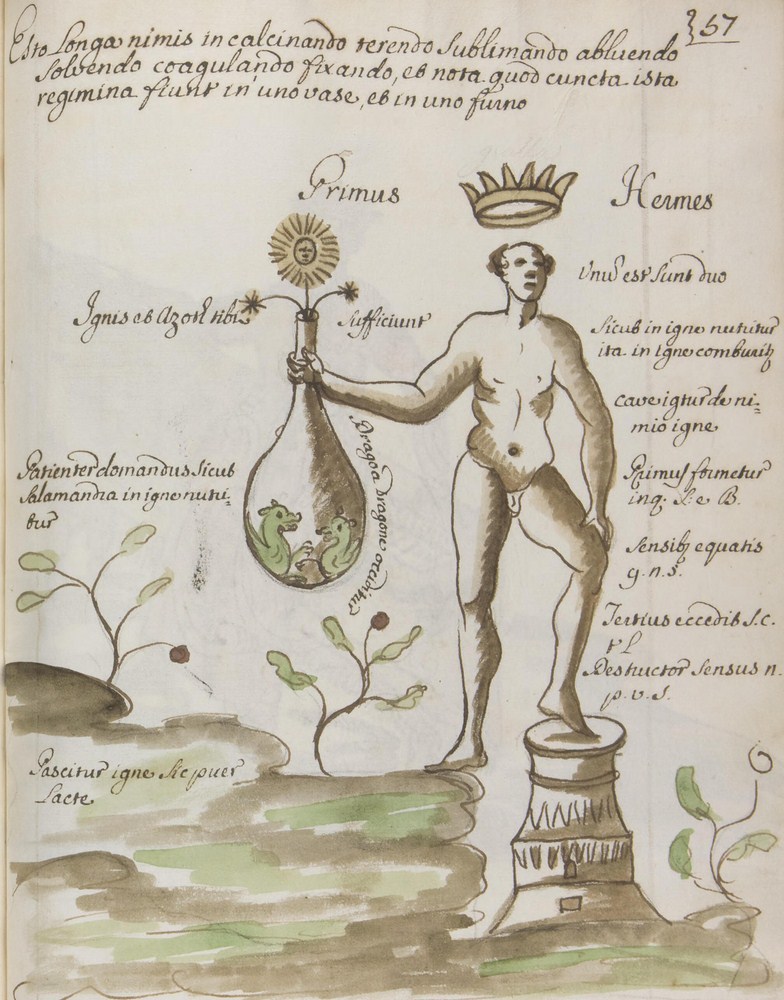 57
Esto Longa nimis in calcinando terendo Sublimando abluendo
Solvendo coagulando fixando, et nota quod cuncta ista
regimina fiunt in uno vase, et in uno furno
Primus
Hermes
Unum est Sunt duo
Ignis et Azoth tibi
Sufficiunt
Sicut in igne nutritur
ita in Igne comburitur
cave igitur de ni=
mio igne
Draco a dragone
Patienter domandus Sicut
Salamandra in igne nutri-
tur
Primus formetur
inq. S. e B.
Sensibus equatis
g. n. s.
Tertius eccedit S. c.
t L
Destructor Sensus n.
p. v. s.
Pascitur igne sic puer
Lacte